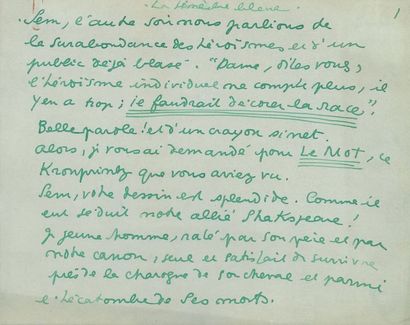 La fenêtre bleue
1
Sem, l'autre soir nous parlions de
la surabondance des héroïsmes et d'un
public déjà blasé. "Dame, dîtes vous,
l'héroïsme individuel ne compte plus, il
y en a trop; il faudrait décorer la race".
Belle parole! et d'un crayon si net.
alors, je vous ai demandé pour Le Mot, ce
Kronprintz que vous aviez vu.
Sem, votre dessin est splendide. Comme il
eut séduit notre allié Shakspeare!
jeune homme, raté par son père et par
notre canon, seul et satisfait de survivre
près de la charogne de son cheval et parmi
l'hécatombe de ses morts.